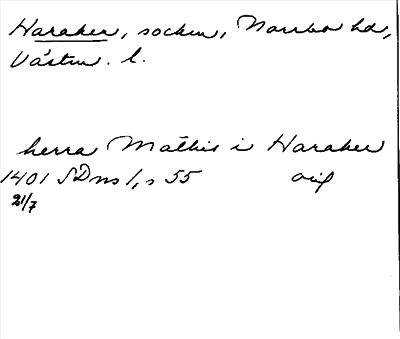 Haraker, socken, Norrbo hd,
Västm. l.
herra Mathis i Haraker
1401 SDns 1, s 55 orig
21/7